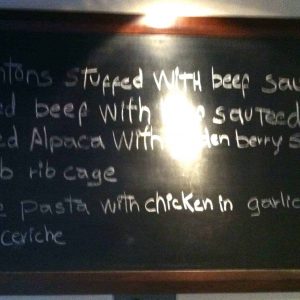 ntons stuffed with beef sau
ed beef with sauteed
ed Alpaca with den berry s
b rib cage
e pasta with chicken in garlic
ceriche